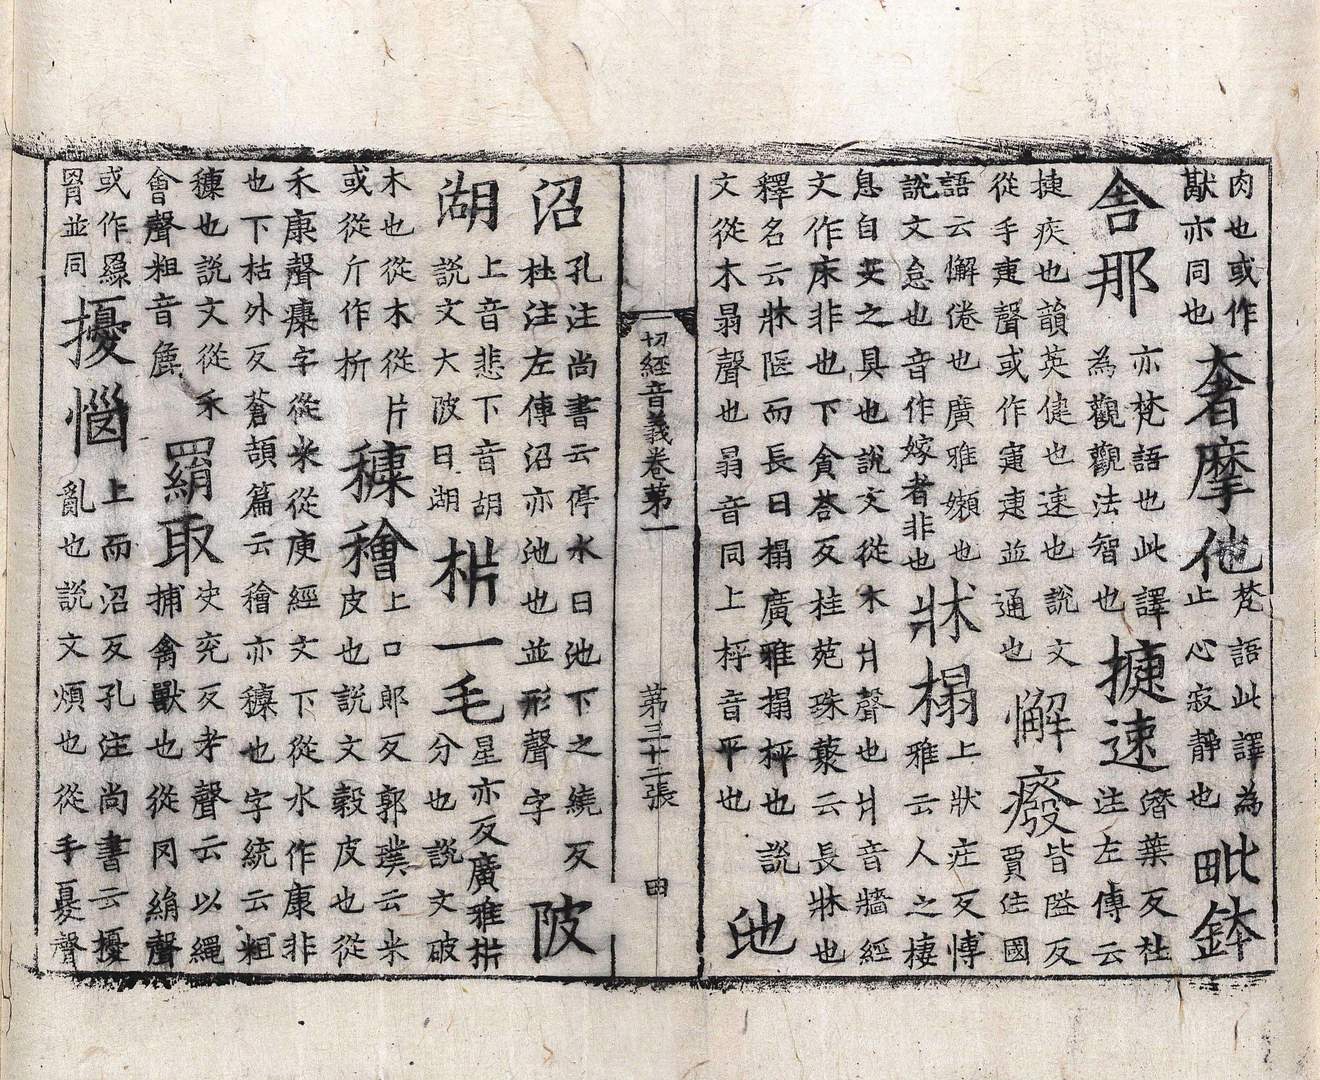 肉也或作
猷亦同也
奢摩他
梵語此譯為
止心寂靜也
毗鉢
舍那
亦梵語也此譯
為觀觀法智也
揵速
潛葉反杜
注左傳云
揵疾也韻英健也速也說文
從手疌聲或作寁疌並通也
懈廢
皆隘反
賈注國
語云懈倦也廣雅嬾也
說文怠也音作嫁者非也
牀榻
上狀庄反博
雅云人之棲
息自安之具也說文從木爿聲也爿音牆經
文作床非也下貪荅反桂苑珠叢云長牀也
釋名云牀陿而長曰榻廣雅榻枰也說
文從木㬱聲也㬱音同上枰音平也
池
切經音義卷第一
第三十二張
田
沼
孔注尚書云停水曰池下之繞反
杜注左傳沼亦池也並形聲字
陂
湖
上音悲下音胡
說文大陂曰湖
㭊一毛
星亦反廣雅㭊
分也說文破
木也從木從片
或從斤作析
穅穭
上口郎反郭璞云米
皮也說文穀皮也從
禾康聲穅字從米從庚經文下從水作康非
也下枯外反蒼頡篇云穭亦穅也字統云粗
穅也說文從禾
會聲粗音麁
羂取
決兖反考聲云以繩
捕禽獸也從罔絹聲
或作䍡
罥並同
擾惱
上而沼反孔注尚書云擾
亂也說文煩也從手憂聲